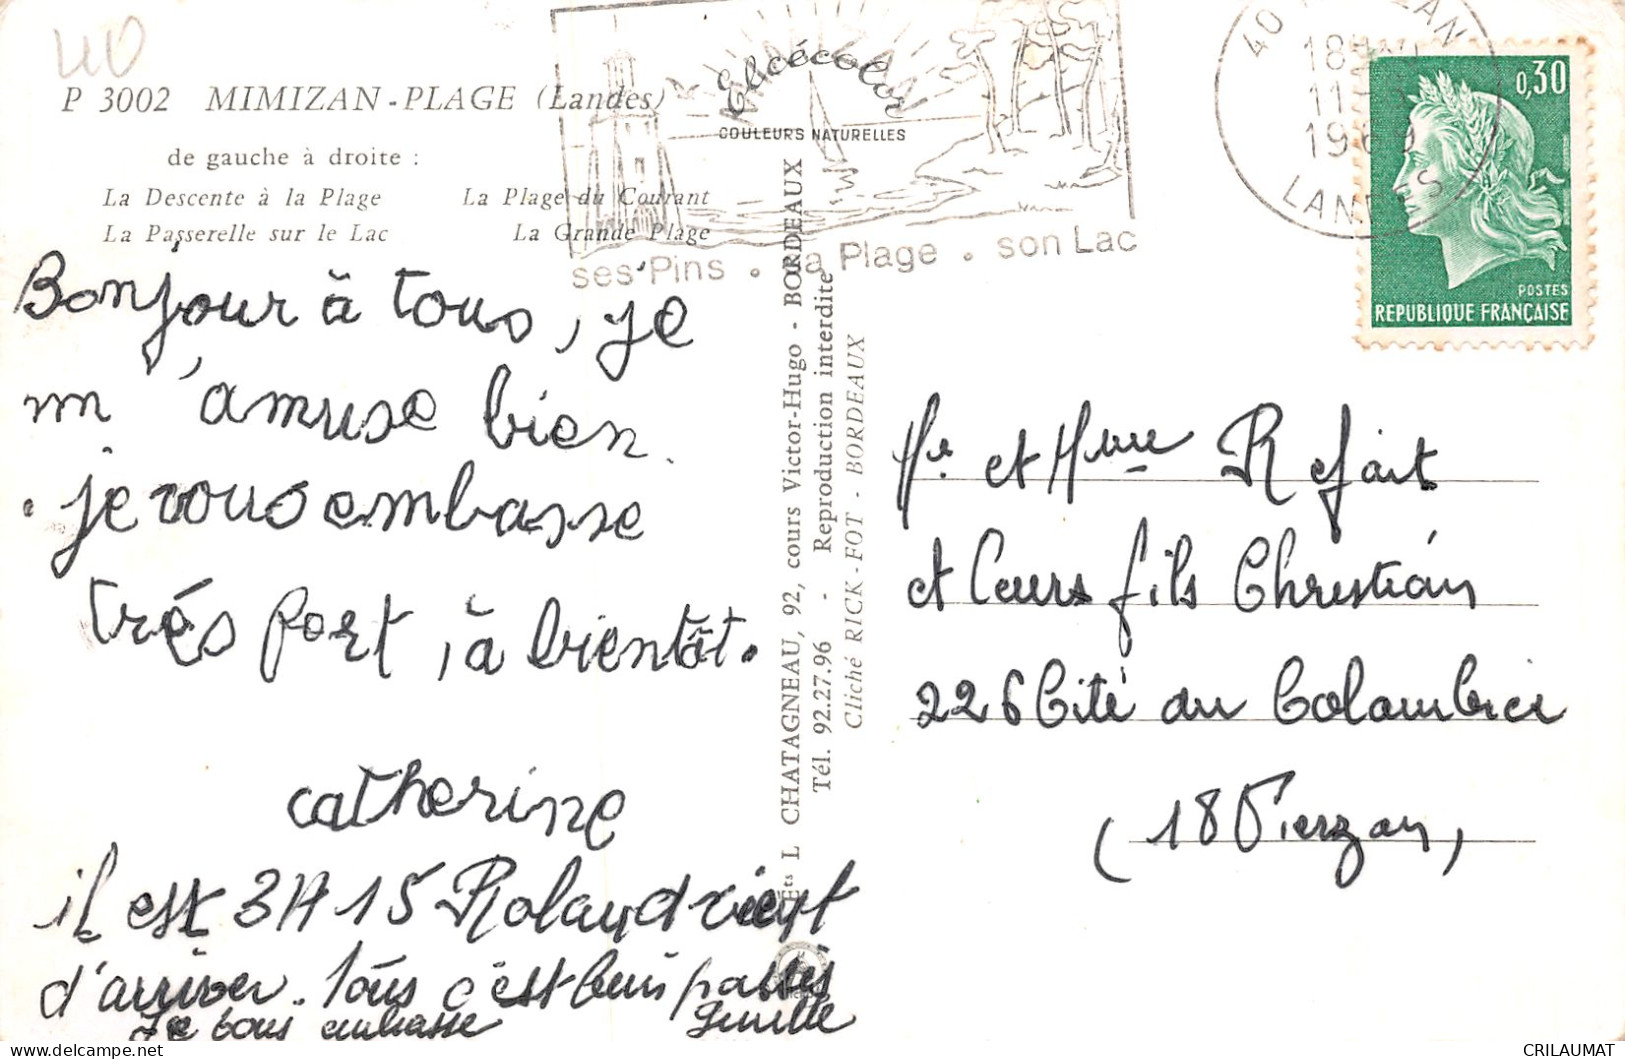 40
P 3002 MIMIZAN-PLAGE (Landes)
de gauche à droite :
La Descente à la Plage
La Plage du Courant
La Passerelle sur le Lac
La Grande Plage
Elicécolor
COULEURS NATURELLES
ses Pins . la Plage . son Lac
40
LANDES
18
11
1969
0,30
POSTES
REPUBLIQUE FRANÇAISE
Bonjour à tous, je
m'amuse bien.
je vous embasse
trés fort, à bientôt.
catherine
il est 3H15 Roland vient
d'arriver. Tous c'est bien passés
Je vous embrasse
Ets L CHATAGNEAU, 92, cours Victor-Hugo - BORDEAUX
Tél. 92.27.96 - Reproduction interdite
Cliché RICK-FOT - BORDEAUX
Mr et Mme Refait
et leurs fils Christian
226 Cité du Colombier
(18 Vierzon)
CRILAUMAT